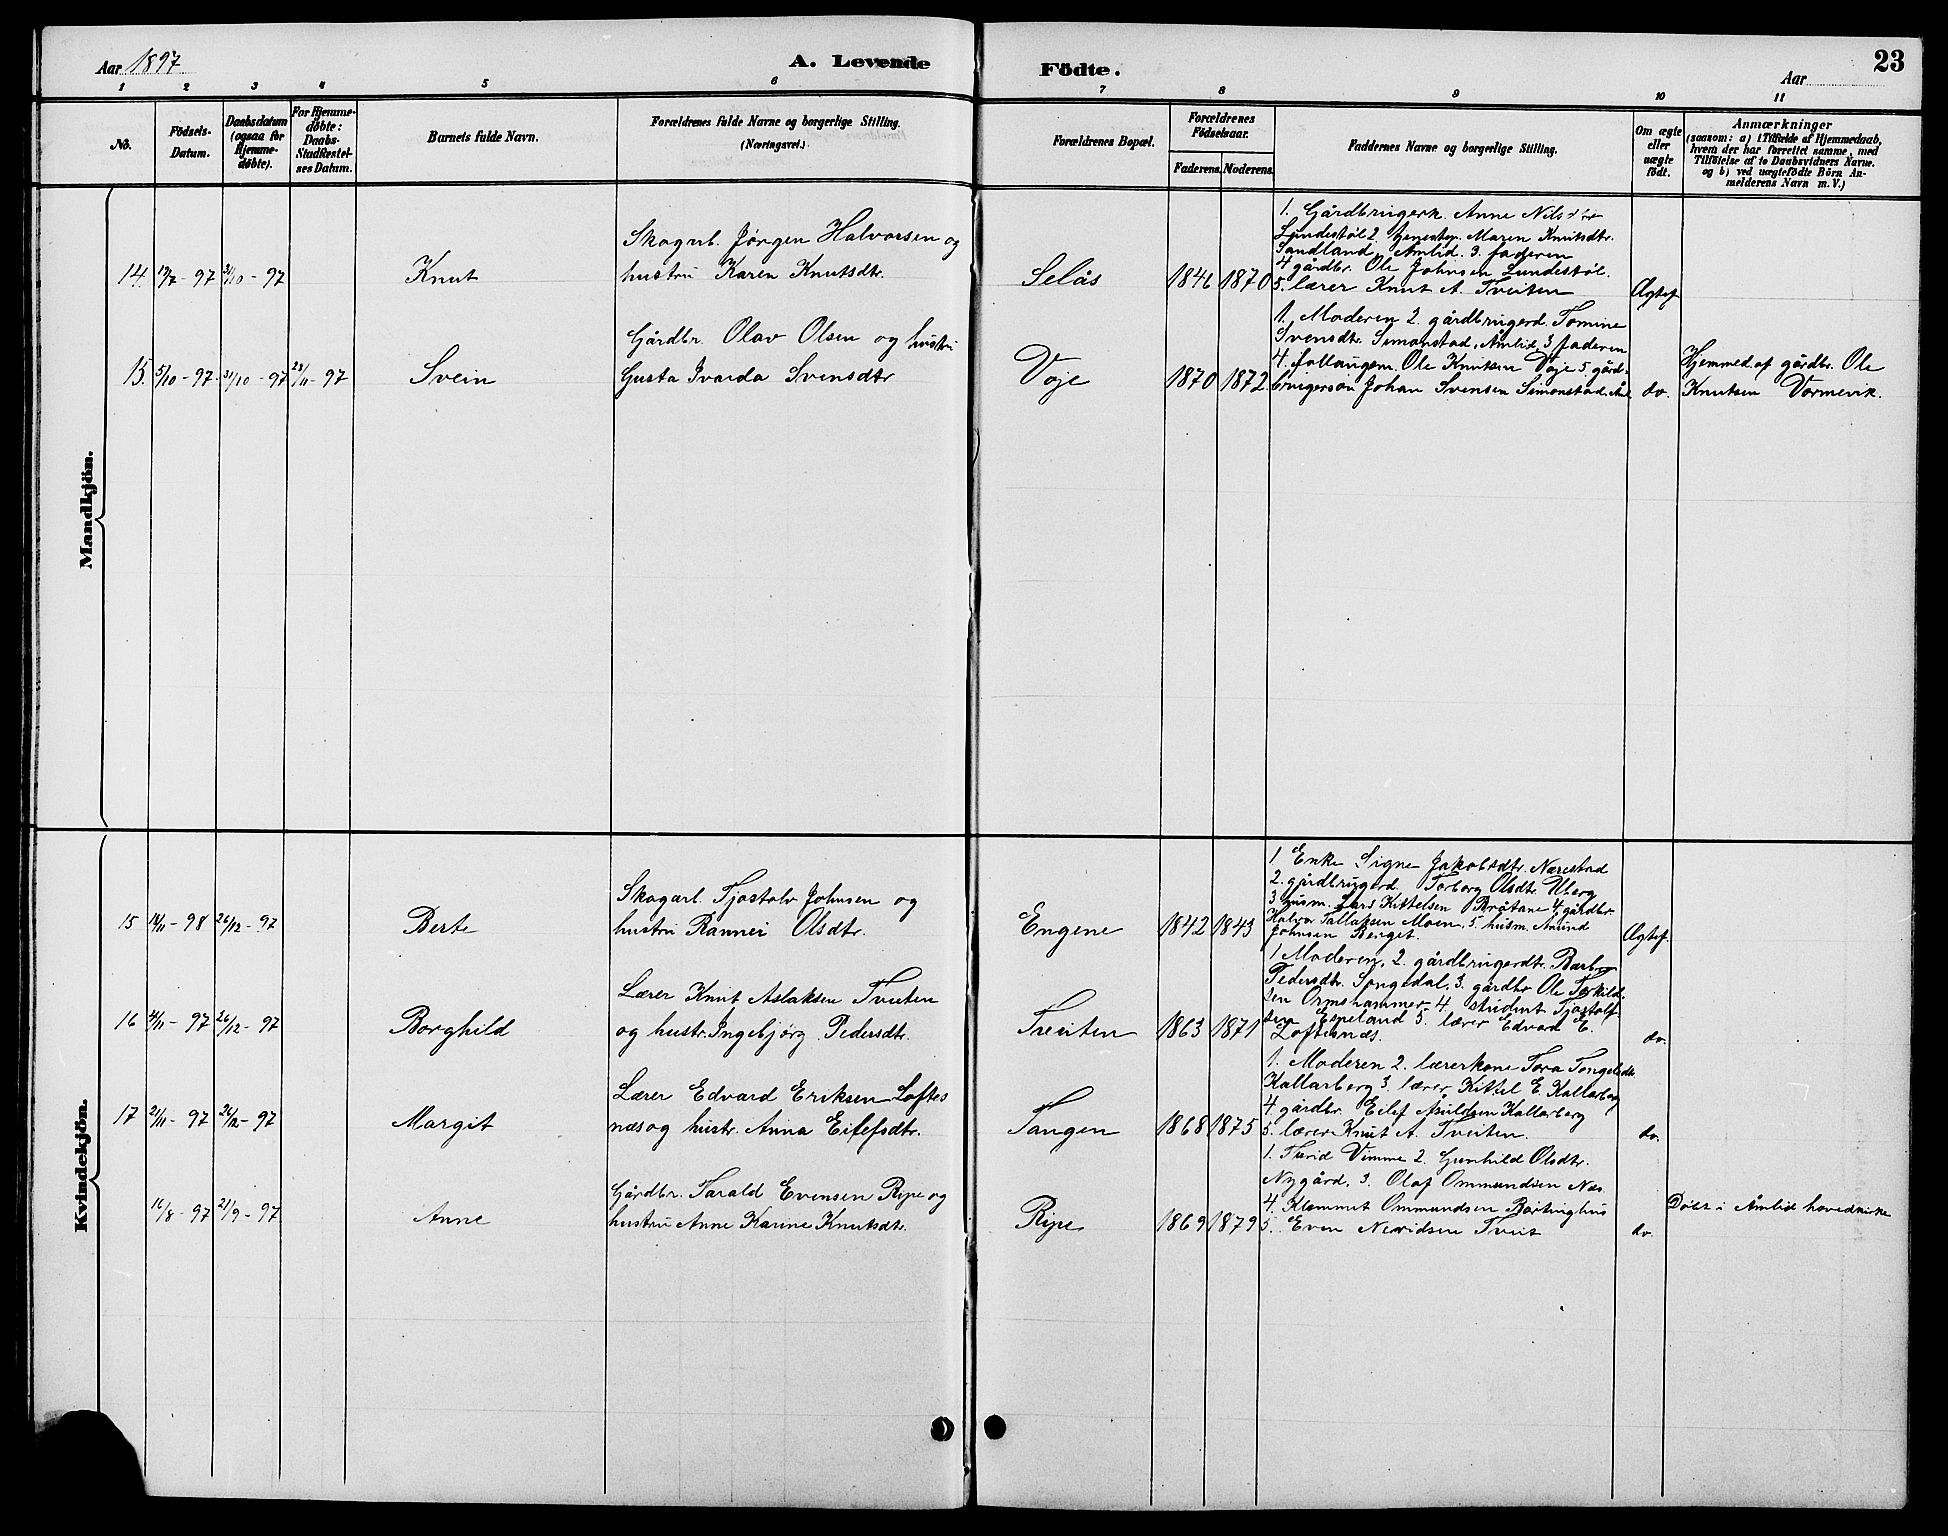 Aar 1897
A. Levende
Födte.
Aar
23
1 2 3 4 5 6 7 8 9 10 11
No.
Födsels-
Datum.
Daabsdatum
(ogsaa for
Hjemme-
døbte).
For Hjemme-
døbte:
Daabs-
Stadfestel-
ses Datum.
Barnets fulde Navn.
Forældrenes fulde Navne og borgerlige Stilling.
(Næringsvei.)
Forældrenes Bopæl.
Forældrenes
Födselsaar.
Faderens. Moderens.
Faddernes Navne og borgerlige Stilling.
Om ægte
eller
uægte
födt.
Anmærkninger
(saasom: a) i Tilfælde af Hjemmedaab,
hvem der har forrettet samme, med
Tilföielse af to Daabsvidners Navne.
og b) ved uægtefödte Börn An-
melderens Navn m. V.)
Mandkjön.
14. 19/7 - 97 31/10 - 97
Knut
Skogarb. Jørgen Halvorsen og
hustru Karen Knutsdtr.
Selås
1846 1870
1. Gårdbrugerk. Anne Nilsdtr
Lundestøl 2. tjenestep. Maren Knutsdtr.
Sandland, Åmlid. 3. faderen
4 gårdbr. Ole Johnsen Lundestøl.
5. lærer Knut A. Tveiten
Ægtef.
15. 5/10 - 97 31/10 - 97 28/11 - 97
Svein
Gårdbr. Olav Olsen og hustru
Gusta Ivarda Svensdtr
Voje
1870 1872
1. Moderen 2. gårdbrugerd. Tomine
Svensdtr. Simonstad, Åmlid, 3 faderen
4. Ole Knutsen Voje 5. gård-
brugersøn Johan Svensen Simonstad, Åml
do.
Hjemmed. af gårdbr. Ole
Knutsen Vormevik.
Kvindekjön.
15 14/11 - 98 26/12 - 97
Berte
Skogarb. Tjostolv Johnsen og
hustru Rannei Olsdtr.
Engene
1842 1843
1 Enke Signe Jakobsdtr. Nærestad
2. gårdbrugerd. Torborg Olsdtr. Uberg
3 husm. Lars Kittelsen Bråtane 4. gårdbr.
Halvor Tallaksen Moen, 5. husm. Amund
Johnsen Berget.
Ægtef.
16 4/11 - 97 26/12 - 97
Borghild
Lærer Knut Aslaksen Tveiten
og hustr. Ingebjörg Pedersdtr.
Tveiten
1863 1871
1 Moderen, 2. gårdbrugerdtr. Barbro
Pedersdtr. Songedal, 3. gårdbr Ole Terkild-
sen Ormshammer, 4. student Tjostolf-
sen Espeland 5. lærer Edvard E.
Loftesnæs.
do.
17 21/11 - 97 26/12 - 97
Margit
Lærer Edvard Eriksen Loftes
næs og hustr. Anna Eilefsdtr.
Tangen
1868 1875
1. Moderen 2. lærerkone Tora Tongelsdtr.
Kallarberg 3. lærer Kittel E. Kallarberg
4. gårdbr. Eilef Asuldsen Kallarberg
5. lærer Knut A. Tveiten.
do.
16/8 - 97 21/9 - 97
Anne
Gårdbr. Tarald Evensen Ripe og
hustru Anne Karine Knutsdtr.
Ripe
1869 1879
1. Turid Vimme 2. Gunhild Olsdtr.
Nygård, 3. Olaf Ommundsen Næs
4. Klemmet Ommundsen
5. Even Tveit
do.
Döbt i Åmlids hovedkirke